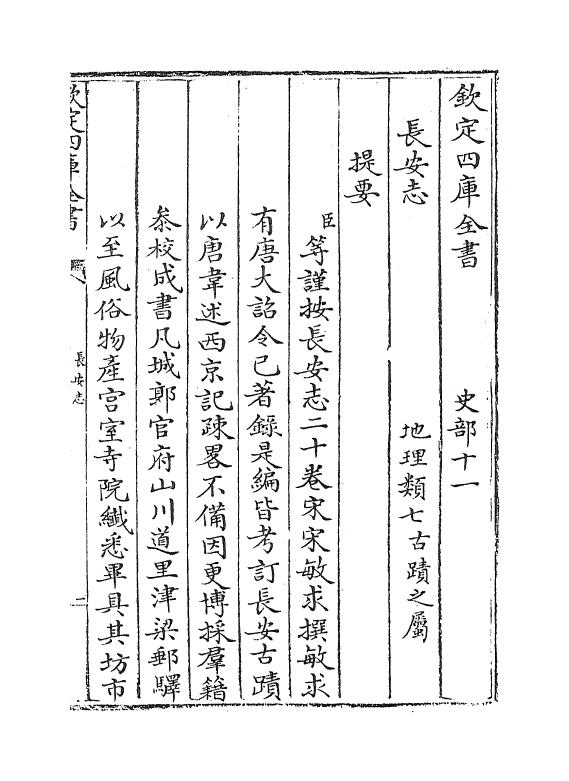 欽定四庫全書　　　史部十一
長安志　　　地理類七古蹟之屬
提要
臣等謹按長安志二十卷宋宋敏求撰敏求
有唐大詔令已著錄是編皆考訂長安古蹟
以唐韋述西京記疎畧不備因更博採羣籍
叅校成書凡城郭官府山川道里津梁郵驛
以至風俗物產宫室寺院纖悉畢具其坊市
欽定四庫全書
長安志